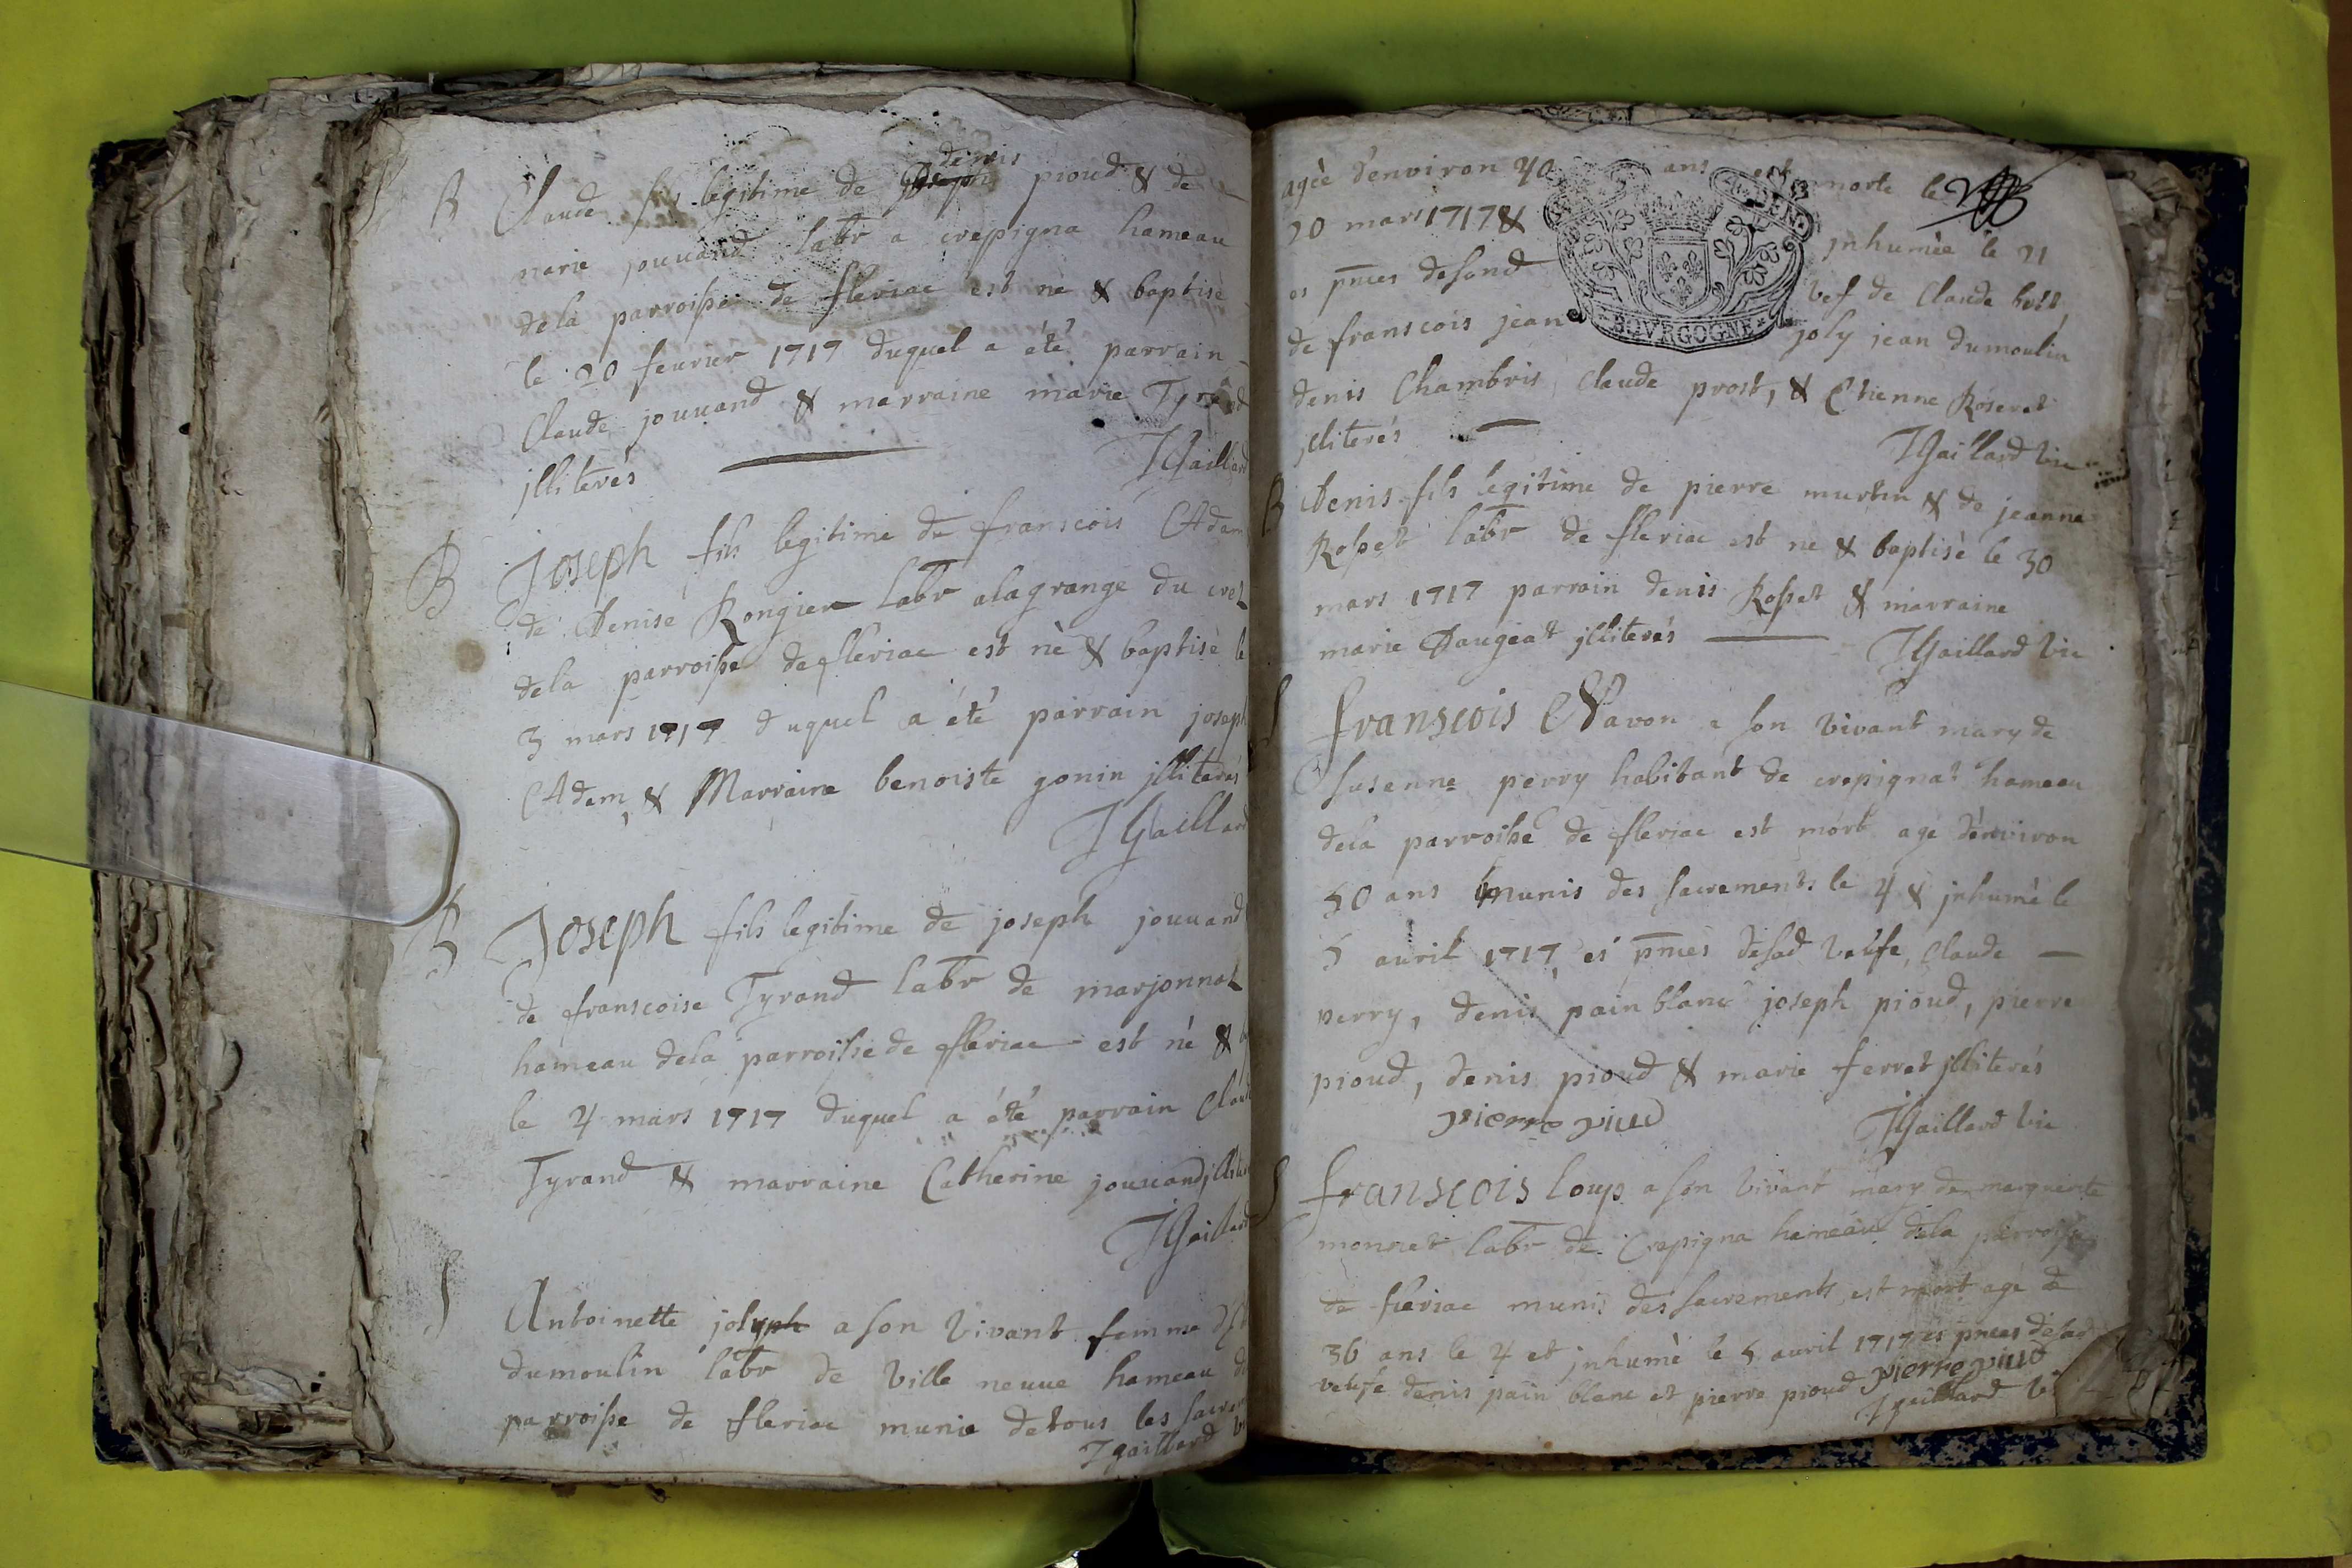 B Claude fils legitime de Joseph denis pioud & de
marie jouuand labr a crepigna hameau
dela parroisse de fleriac est né & baptisé
le 20 feurier 1717 duquel a été parrain
Claude jouuand & marraine marie Tyrand
jlliterés JGaillard
B Joseph fils legitime de franscois Adam
de Denise Rongier labr alagrange du cret
dela parroisse de fleriac est né & baptisé le
3 mars 1717 duquel a été parrain joseph
Adam, & Marraine benoiste gonin jlliterés
JGaillard
B Joseph fils legitime de joseph jouuand
de franscoise Tyrand labr de marjonnat
hameau dela parroisse de fleriac est né &
le 4 mars 1717 duquel a été parrain Claude
Tyrand & marraine Catherine jouuand, jlliter
JGaillard
S Antoinette jolyph a son vivant femme
dumoulin labr de ville neuue hameau
parroisse de fleriac munie detous les sacre
Jgaillard
agée d'enviran 40 ans est morte le
20 mars 1717 & jnhumée le 21
es pnces desond vef de Claude
de franscois jean joly jean dumoulin
denis Chambris, Claude prost, & Etienne Roseret
jlliterés JGaillard vic
B Denis fils legitime de pierre murtin & de jeanne
Rosset labr de fleriac est né & baptisé le 30
mars 1717 parrain denis Rosset & marraine
marie Daugeat jlliterés JGaillard vic
S franscois Navon a son vivant mary de
susenne perry habitant de crepignat hameau
dela parroisse de fleriac est mort agé d'enviiron
50 ans munis des sacrements le 4 & jnhumé le
5 auril 1717, es pnces desad veufe, Claude
perry, denis pain blanc joseph pioud, pierre
pioud, denis pioud & marie ferret jlliterés
pierre piud JGaillard vic
S franscois Loup a son vivant mary de marguerite
monnet labr de Crepigna hameau dela parroisse
de fleriac munis des sacrements est mort agé de
36 ans le 4 et jnhumé le 5 auril 1717 es pnces desad
veufe denis pain blanc et pierre pioud pierre piud
Jgaillard